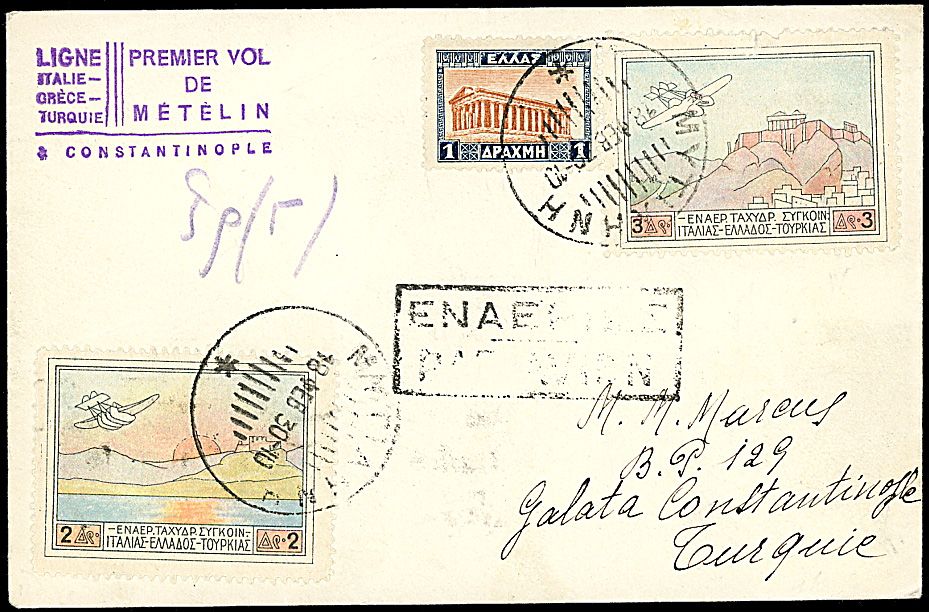 LIGNE
ITALIE-
GRÈCE-
TURQUIE
PREMIER VOL
DE
MÉTÉLIN
à CONSTANTINOPLE
ΕΛΛΑΣ
1 ΔΡΑΧΜΗ 1
3 Δρ.
-ΕΝΑΕΡ. ΤΑΧΥΔΡ. ΣΥΓΚΟΙΝ.
ΙΤΑΛΙΑΣ-ΕΛΛΑΔΟΣ-ΤΟΥΡΚΙΑΣ
Δρ. 3
ΕΝΑΕΡ
PAR AVION
18 FEB 30-10
2 Δρ.
-ΕΝΑΕΡ. ΤΑΧΥΔΡ. ΣΥΓΚΟΙΝ.-
ΙΤΑΛΙΑΣ-ΕΛΛΑΔΟΣ-ΤΟΥΡΚΙΑΣ
Δρ. 2
M. M. Marcus
B.P. 129
Galata Constantinople
Turquie